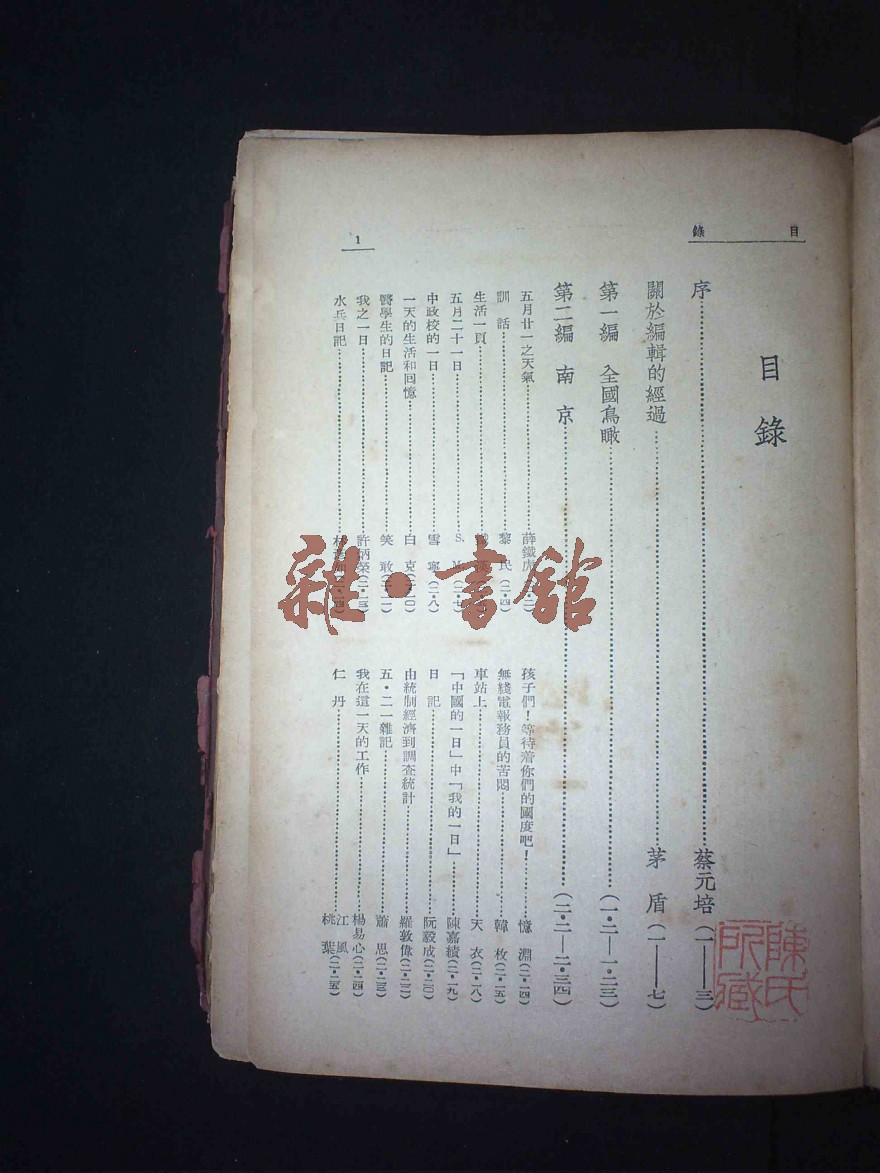 目錄
目錄
序 蔡元培（一——三）
關於編輯的經過 茅盾（一——七）
第一編 全國鳥瞰 （一·二—一·二三）
第二編 南京 （二·二—二·三四）
五月廿一之天氣 薛鐵虎
訓話 黎民（二·四）
生活一頁
五月二十一日 S. M.（二·七）
中政校的一日 雪寧（二·八）
一天的生活和回憶 白克（二·一〇）
醫學生的日記 笑敢（二·一二）
我之一日 許炳榮（二·一三）
水兵日記
孩子們！等待着你們的國度吧！ 憶淵（二·一四）
無綫電報務員的苦悶 韓枚（二·一五）
車站上 天衣（二·一八）
「中國的一日」中「我的一日」 陳嘉績（二·一九）
日記 阮毅成（二·二〇）
由統制經濟到調查統計 羅敦偉（二·二二）
五·二一雜記 蕭思（二·二三）
我在這一天的工作 楊易心（二·二四）
仁丹 江風 桃葉（二·二五）
1
陳氏所藏
雜·書館